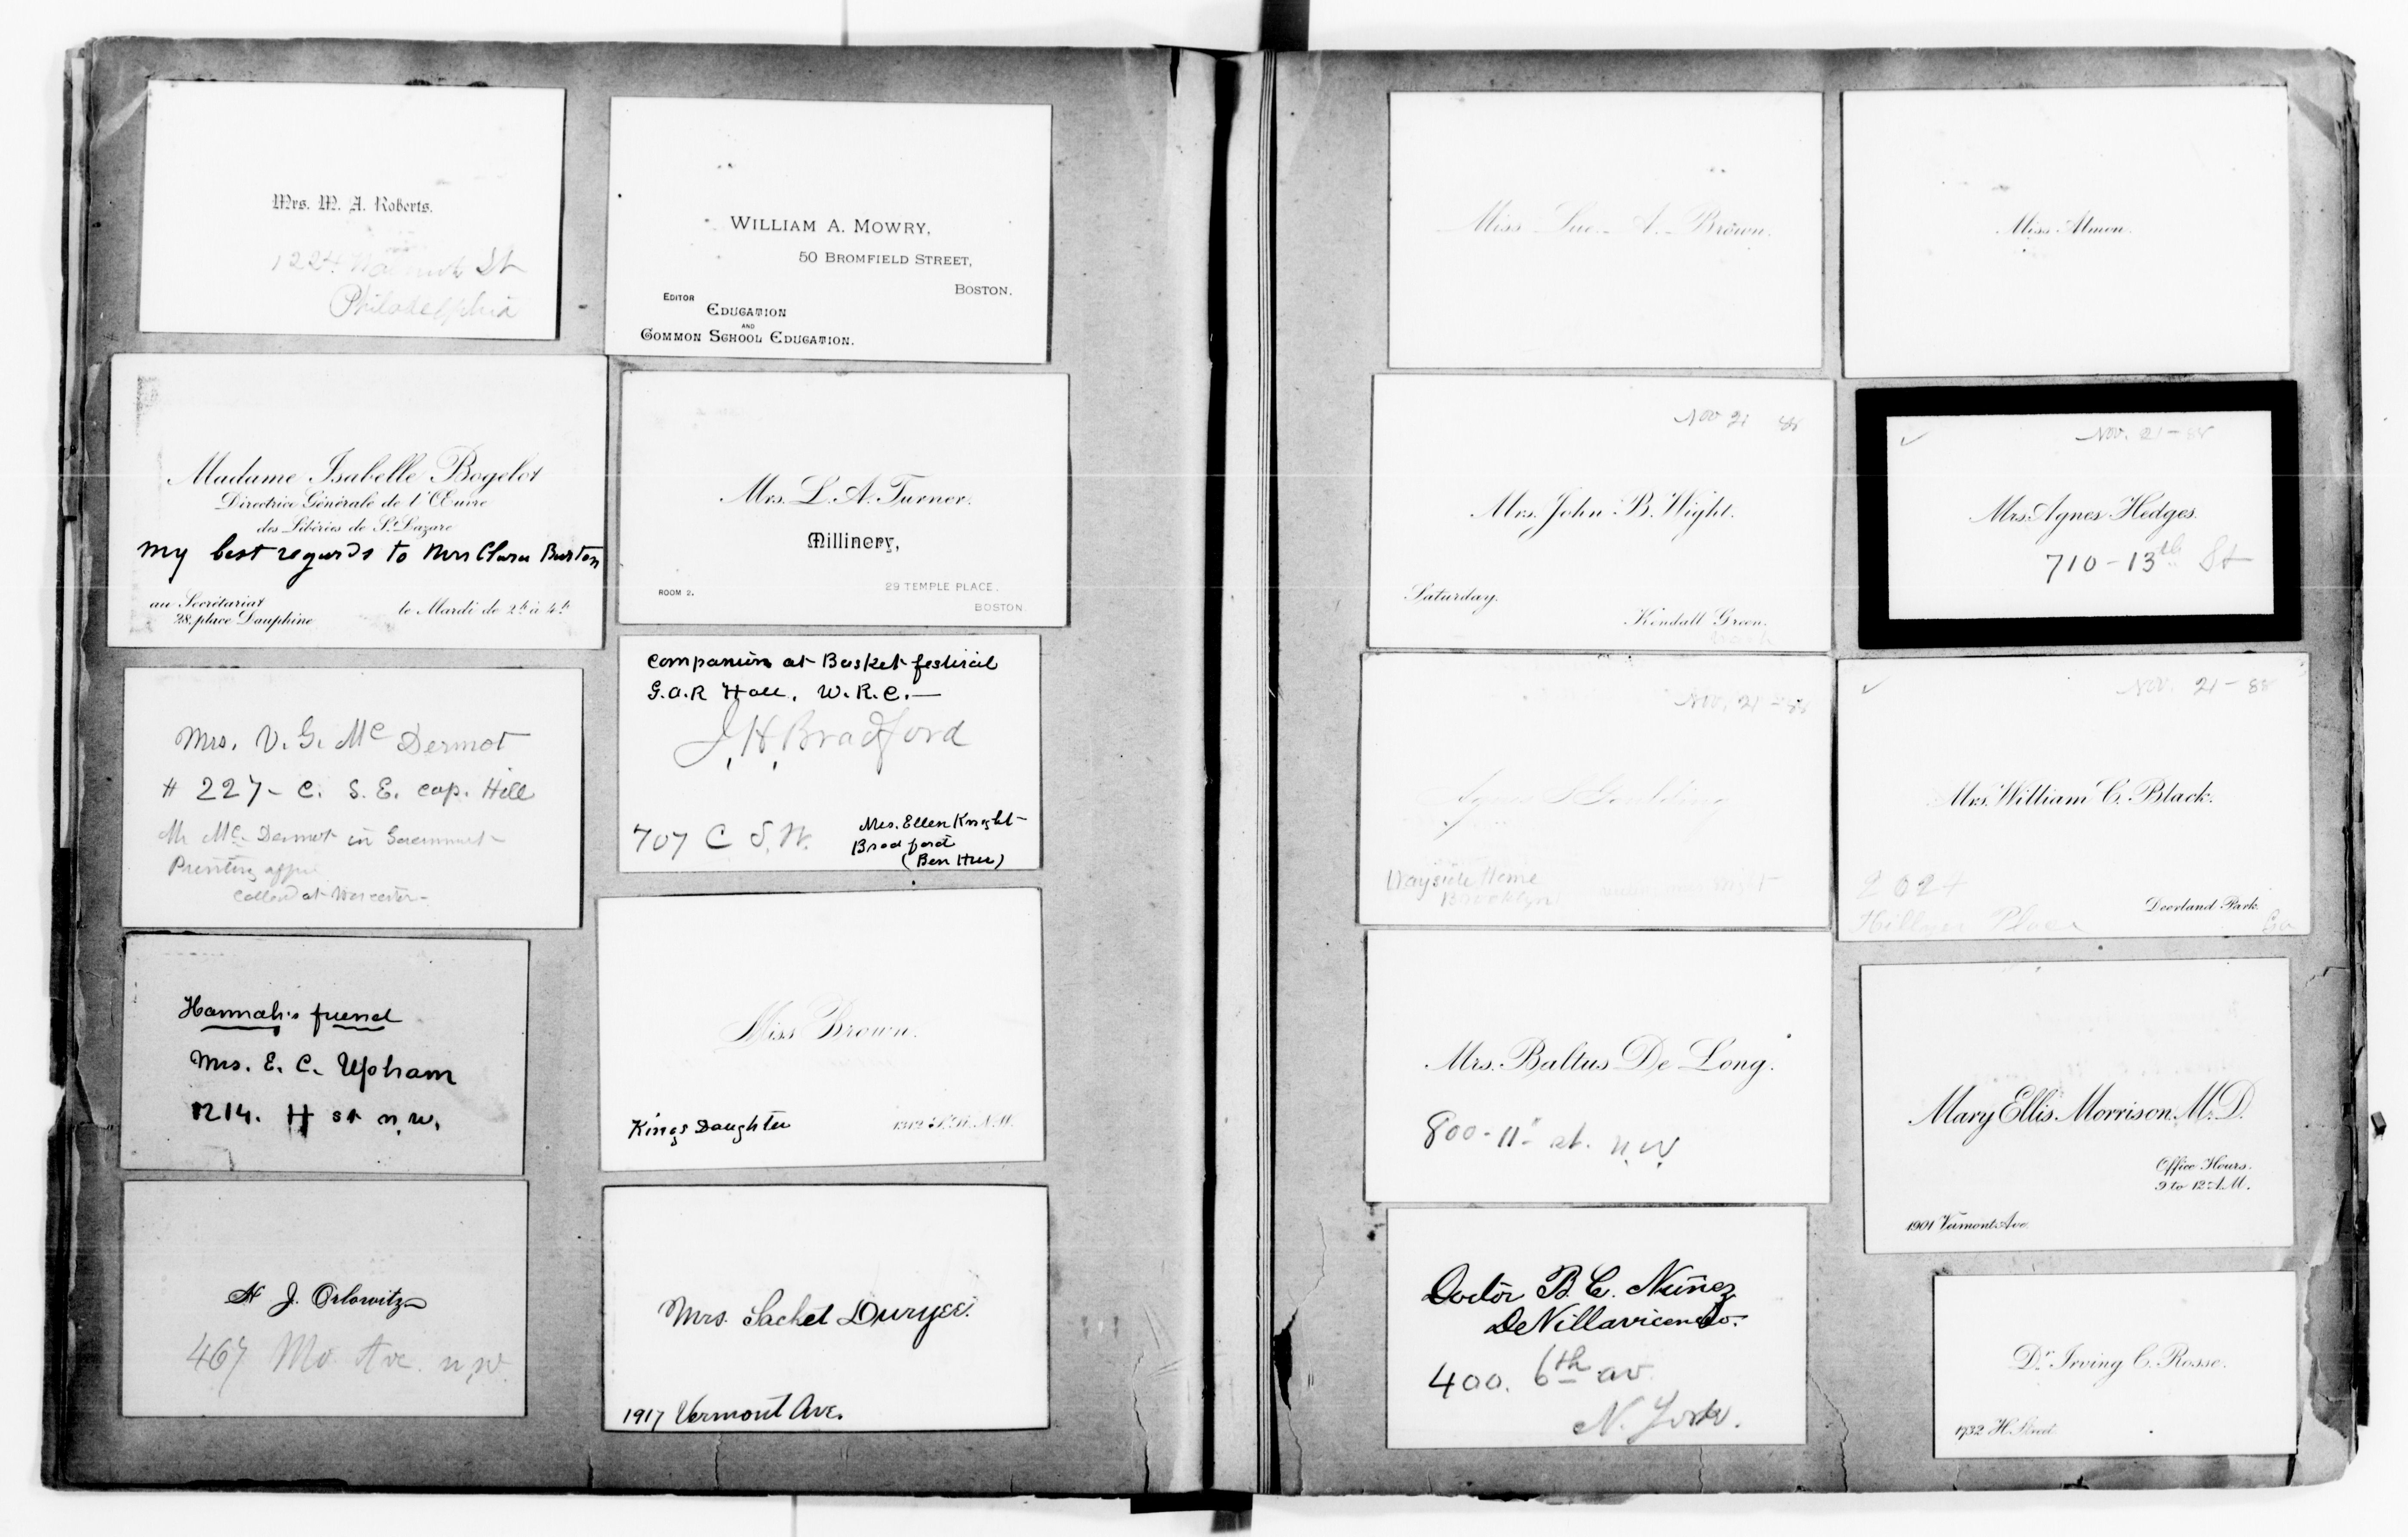 Mrs. M. A. Roberts.
1224 Walnut St
Philadelphia
WILLIAM A. MOWRY,
50 BROMFIELD STREET,
BOSTON.
EDITOR
EDUCATION
AND
COMMON SCHOOL EDUCATION.
Madame Isabelle Bogelot
Directrice Générale de l'Œuvre
des Libérées de St Lazare
my best regards to Mrs Clara Barton
au Secrétariat
28, place Dauphine
le Mardi de 2h à 4h
Mrs. L. A. Turner.
Millinery,
ROOM 2.
29 TEMPLE PLACE.
BOSTON.
Mrs. V. G. Mc Dermot
# 227- C. S. E. Cap. Hill
Mr Mc. Dermot in Government
Printing office
Called at Worcester-
Companion at Basket festival
G.A.R Hall, W.R.C.-
J. H. Bradford
707 C S.W.
Mrs. Ellen Knight-
Bradford
(Ben Hur)
Hannah's friend
Mrs. E. C. Upham
1214. H st n.w.
Miss Brown.
Kings Daughter
1312 N.W.
H J. Orlowitz
467 Mo. Ave. n.w.
Mrs. Sachet Duryee.
1917 Vermont Ave.
Miss Sue. A. Brown.
Miss Almon.
Nov 21 88
Mrs. John B. Wight.
Saturday.
Kendall Green.
Nov. 21-88
Mrs. Agnes Hedges.
710-13th St
Nov. 21-88
Agnes L Goulding
Wayside Home
Brooklyn
Nov. 21-88
Mrs. William C. Black.
2024
Hillyer Place
Deerland Park.
Ga
Mrs. Baltus De Long.
800-11" st. n.w
Mary Ellis Morrison, M.D.
Office Hours.
9 to 12 A.M.
1901 Vermont Ave.
Doctor B. C. Nuñez
De Villavicencio.
400. 6th av.
N. York.
Dr. Irving C. Rosse.
1732 H Street